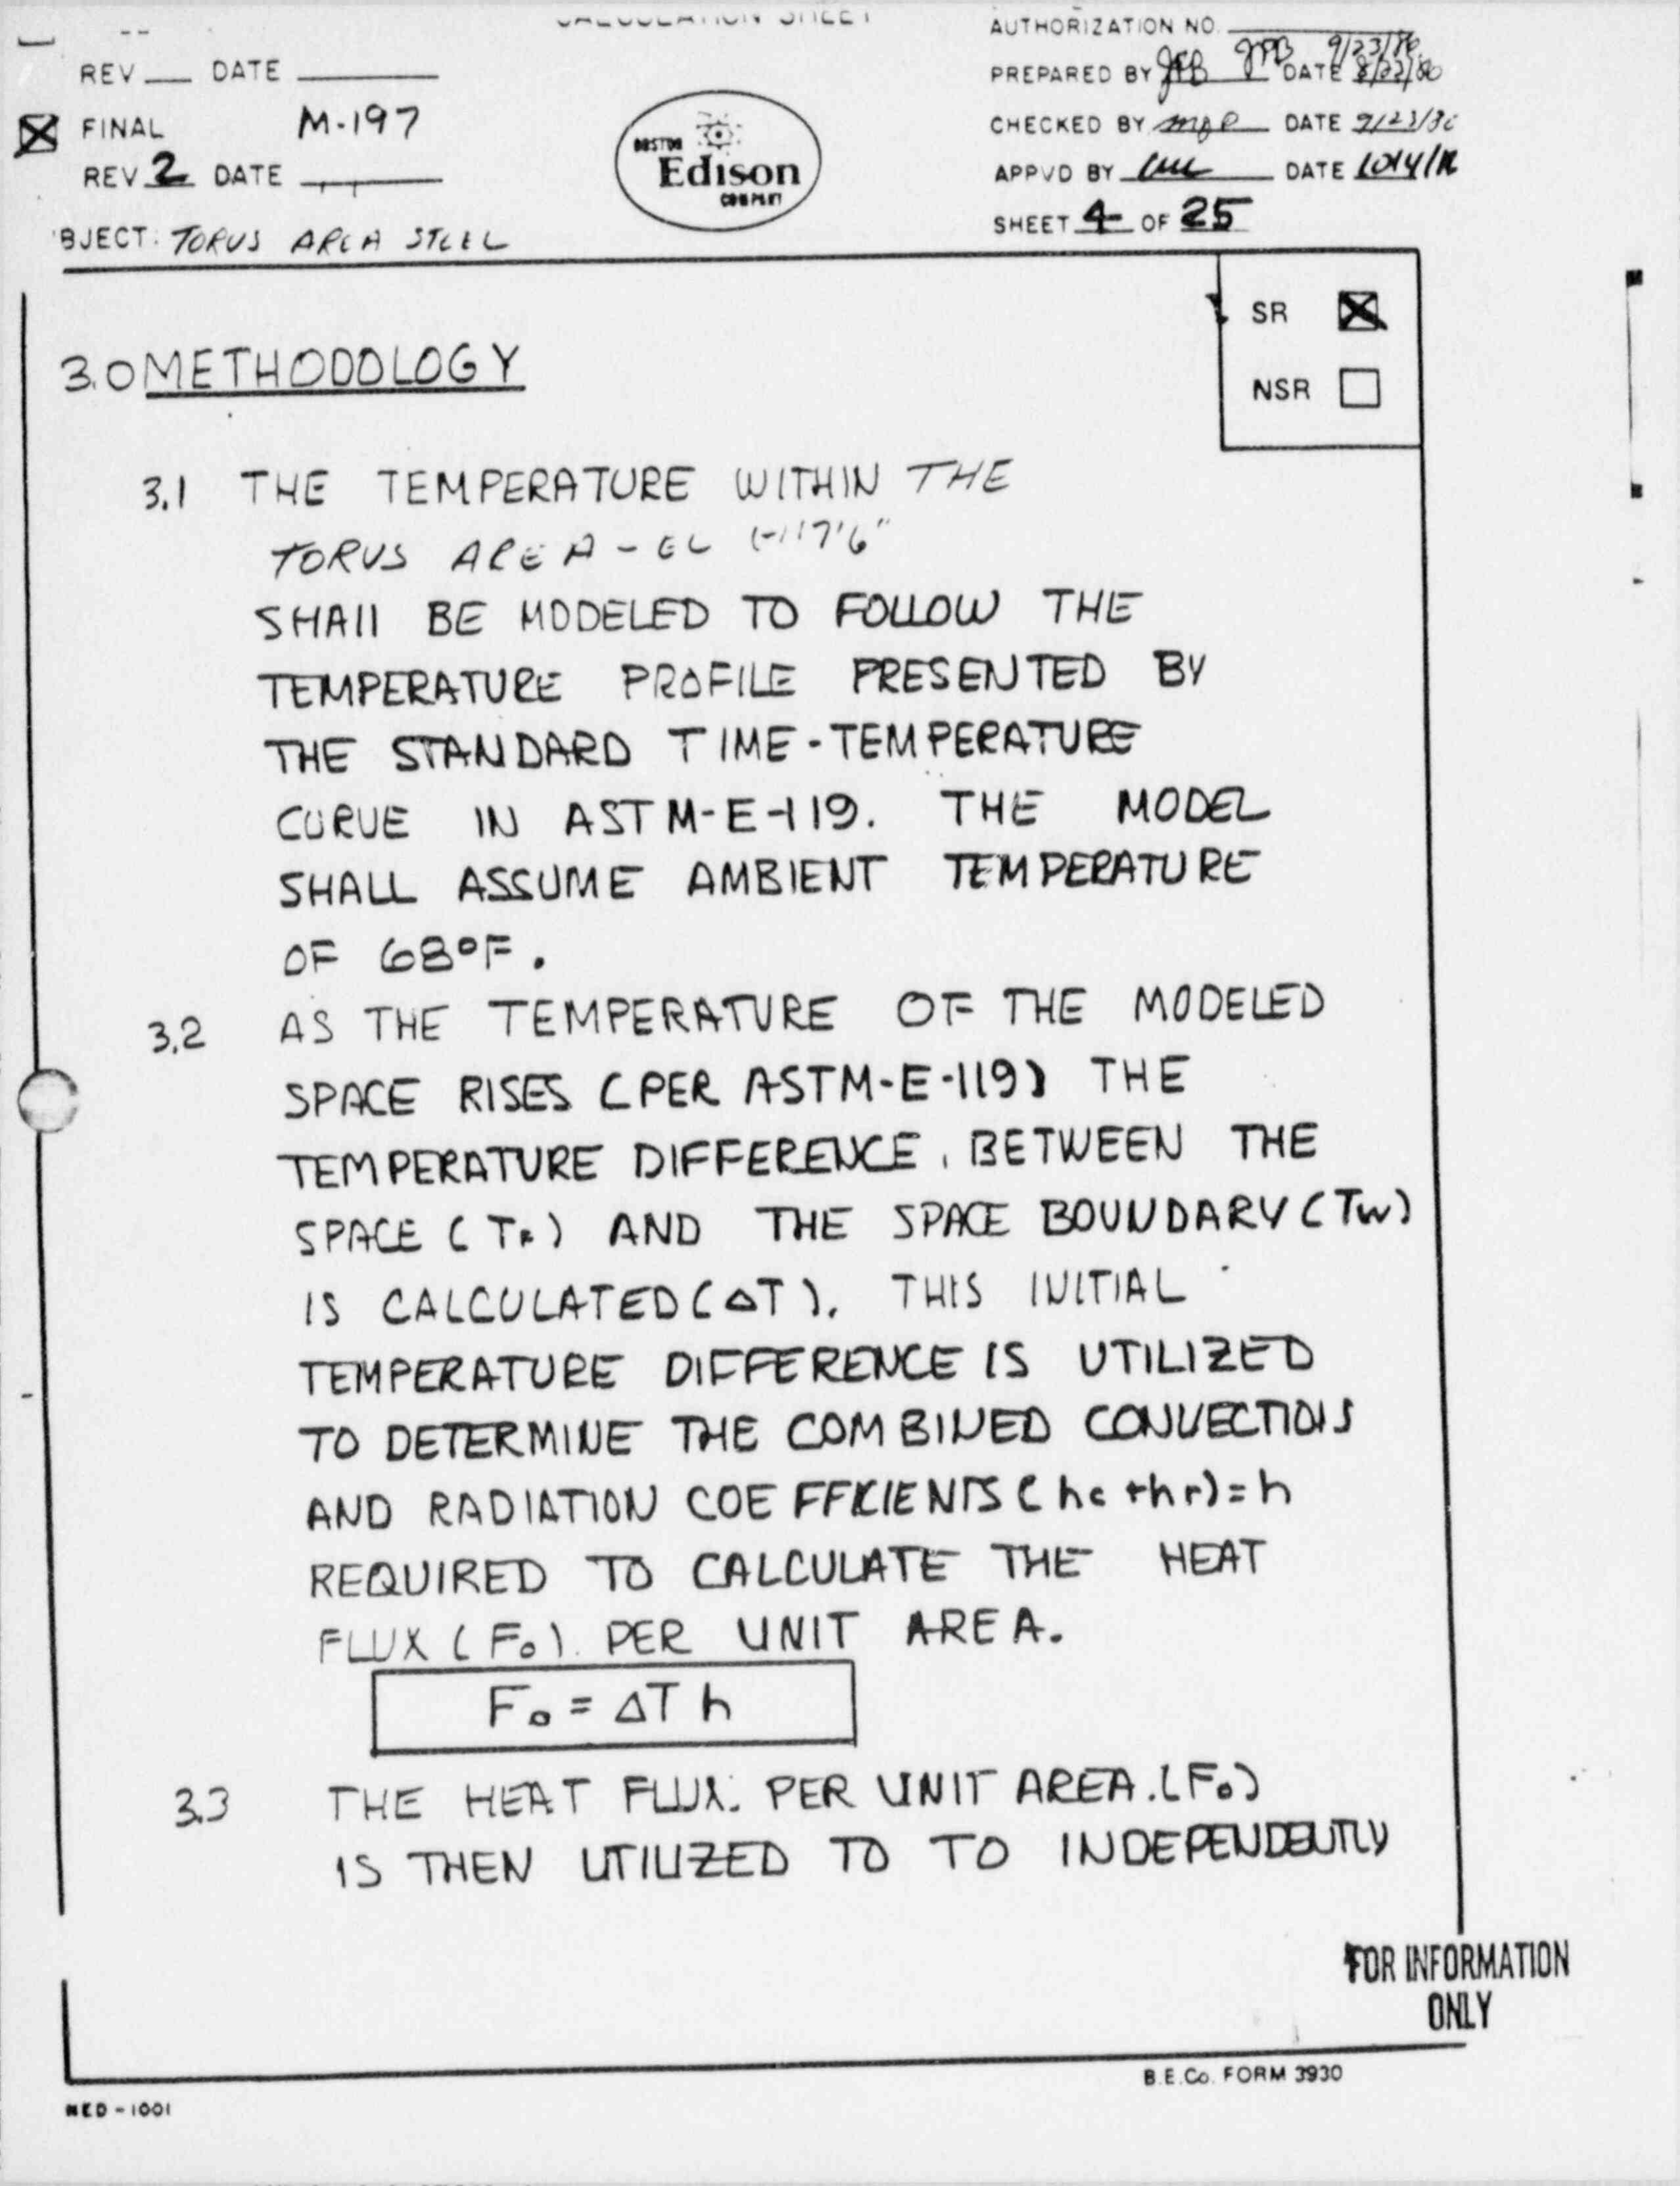 CALCULATION SHEET
AUTHORIZATION NO.
REV DATE
PREPARED BY JPB JPB DATE 9/23/86 8/22/86
FINAL M-197
CHECKED BY DATE 9/23/86
REV 2 DATE
APPVD BY DATE
BOSTON
Edison
COMPANY
SHEET 4 OF 25
BJECT: TORUS AREA STEEL
SR
NSR
3.0 METHODOLOGY
3.1 THE TEMPERATURE WITHIN THE
TORUS AREA - EL (-)17'6"
SHAll BE MODELED TO FOLLOW THE
TEMPERATURE PROFILE PRESENTED BY
THE STANDARD TIME-TEMPERATURE
CURVE IN ASTM-E-119. THE MODEL
SHALL ASSUME AMBIENT TEMPERATURE
OF 68°F.
3.2 AS THE TEMPERATURE OF THE MODELED
SPACE RISES (PER ASTM-E-119) THE
TEMPERATURE DIFFERENCE, BETWEEN THE
SPACE (TF) AND THE SPACE BOUNDARY (TW)
IS CALCULATED (ΔT). THIS INITIAL
TEMPERATURE DIFFERENCE IS UTILIZED
TO DETERMINE THE COMBINED CONVECTIONS
AND RADIATION COEFFICIENTS (hc + hr) = h
REQUIRED TO CALCULATE THE HEAT
FLUX (Fo). PER UNIT AREA.
Fo = ΔT h
3.3 THE HEAT FLUX. PER UNIT AREA. (Fo)
IS THEN UTILIZED TO TO INDEPENDENTLY
FOR INFORMATION
ONLY
B.E.Co. FORM 3930
NED-1001